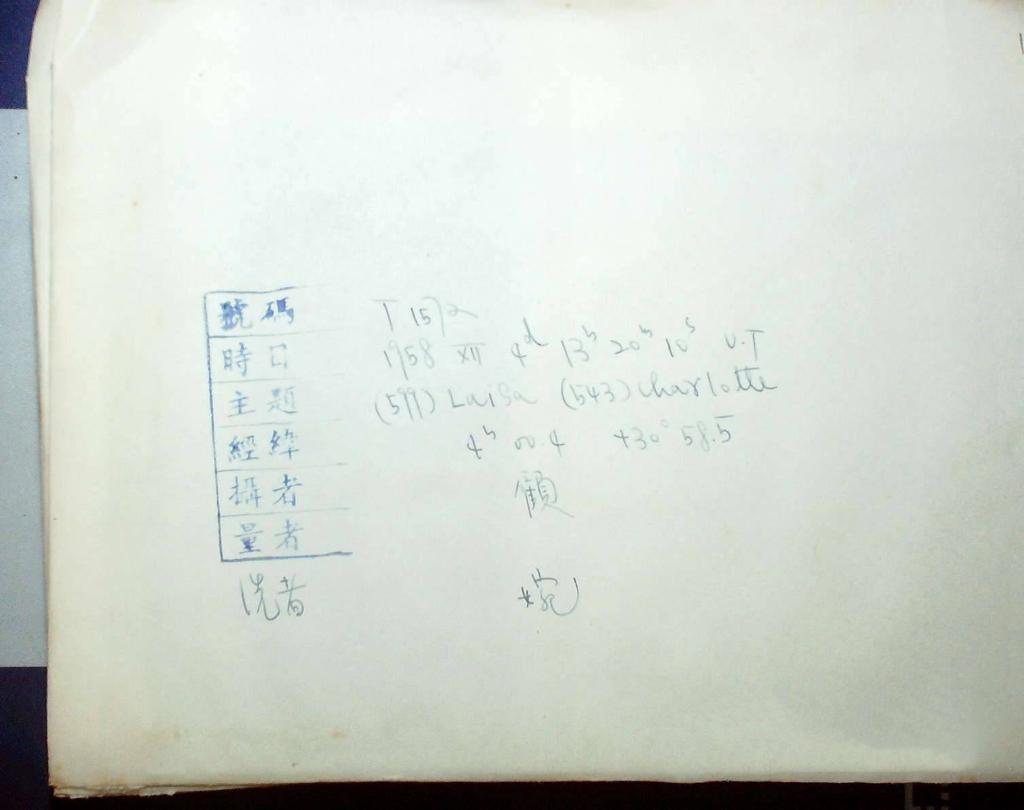 號碼 T 1572
時日 1958 XII 4d 13h 20m 10s U.T
主題 (599) Luisa (543) Charlotte
經緯 4h 00.4 +30° 58.5
攝者 顧
量者
洗者 婉